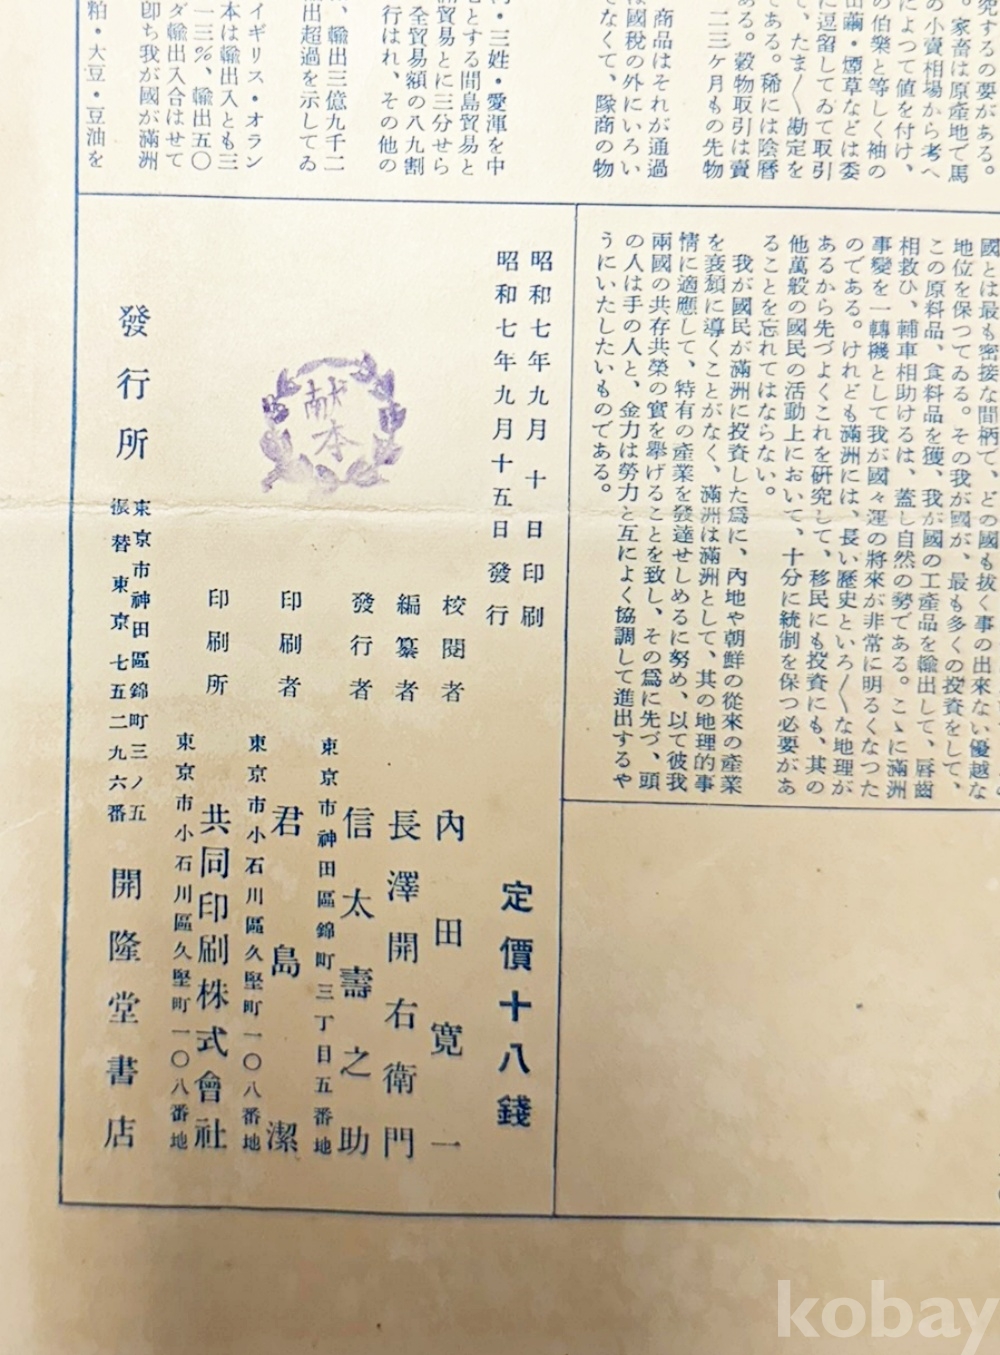 究するの要がある。
家畜は原產地で馬
の小賣相場から考へ
によつて値を付け、
の伯樂と等しく袖の
田繭・煙草などは委
に逗留してゐて取引
て、たま〱勘定を
である。稀には陰曆
ある。穀物取引は賣
二三ケ月もの先物
商品はそれが通過
は國稅の外にいろい
でなくて、隊商の物
・三姓・愛渾を中
とする間島貿易と
貿易とに三分せら
全貿易額の八九割
行はれ、その他の
、輸出三億九千二
出超過を示してゐ
イギリス・オラン
本は輸出入とも三
一三%、輸出五〇
ダ輸出入合はせて
卽ち我が國が滿洲
粕・大豆・豆油を
國とは最も密接な間柄で、どの國も拔く事の出來ない優越な
地位を保つてゐる。その我が國が、最も多くの投資をして、
この原料品、食料品を獲、我が國の工產品を輸出して、脣齒
相救ひ、輔車相助けるは、蓋し自然の勢である。こゝに滿洲
事變を一轉機として我が國々運の將來が非常に明るくなつた
のである。けれども滿洲には、長い歷史といろ〱な地理が
あるから先づよくこれを研究して、移民にも投資にも、其の
他萬般の國民の活動上において、十分に統制を保つ必要があ
ることを忘れてはならない。
我が國民が滿洲に投資した爲に、內地や朝鮮の從來の產業
を衰頽に導くことがなく、滿洲は滿洲として、其の地理的事
情に適應して、特有の產業を發達せしめるに努め、以て彼我
兩國の共存共榮の實を擧げることを致し、その爲に先づ、頭
の人は手の人と、金力は勞力と互によく協調して進出するや
うにいたしたいものである。
昭和七年九月十日印刷
昭和七年九月十五日發行
定價十八錢
校閱者 內田寬一
編纂者 長澤開右衛門
發行者 信太壽之助
東京市神田區錦町三丁目五番地
印刷者 君島潔
東京市小石川區久堅町一〇八番地
印刷所 共同印刷株式會社
東京市小石川區久堅町一〇八番地
發行所 開隆堂書店
東京市神田區錦町三ノ五
振替東京七五二九六番
獻本
kobay